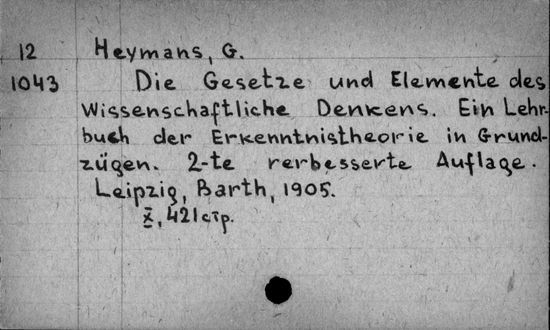 12 Heymans, G.
1043 Die Gesetze und Elemente des
Wissenschaftliche Denkens. Ein Lehr-
buch der Erkenntnistheorie in Grund-
zügen. 2-te rerbesserte Auflage.
Leipzig, Barth, 1905.
X, 421 стр.